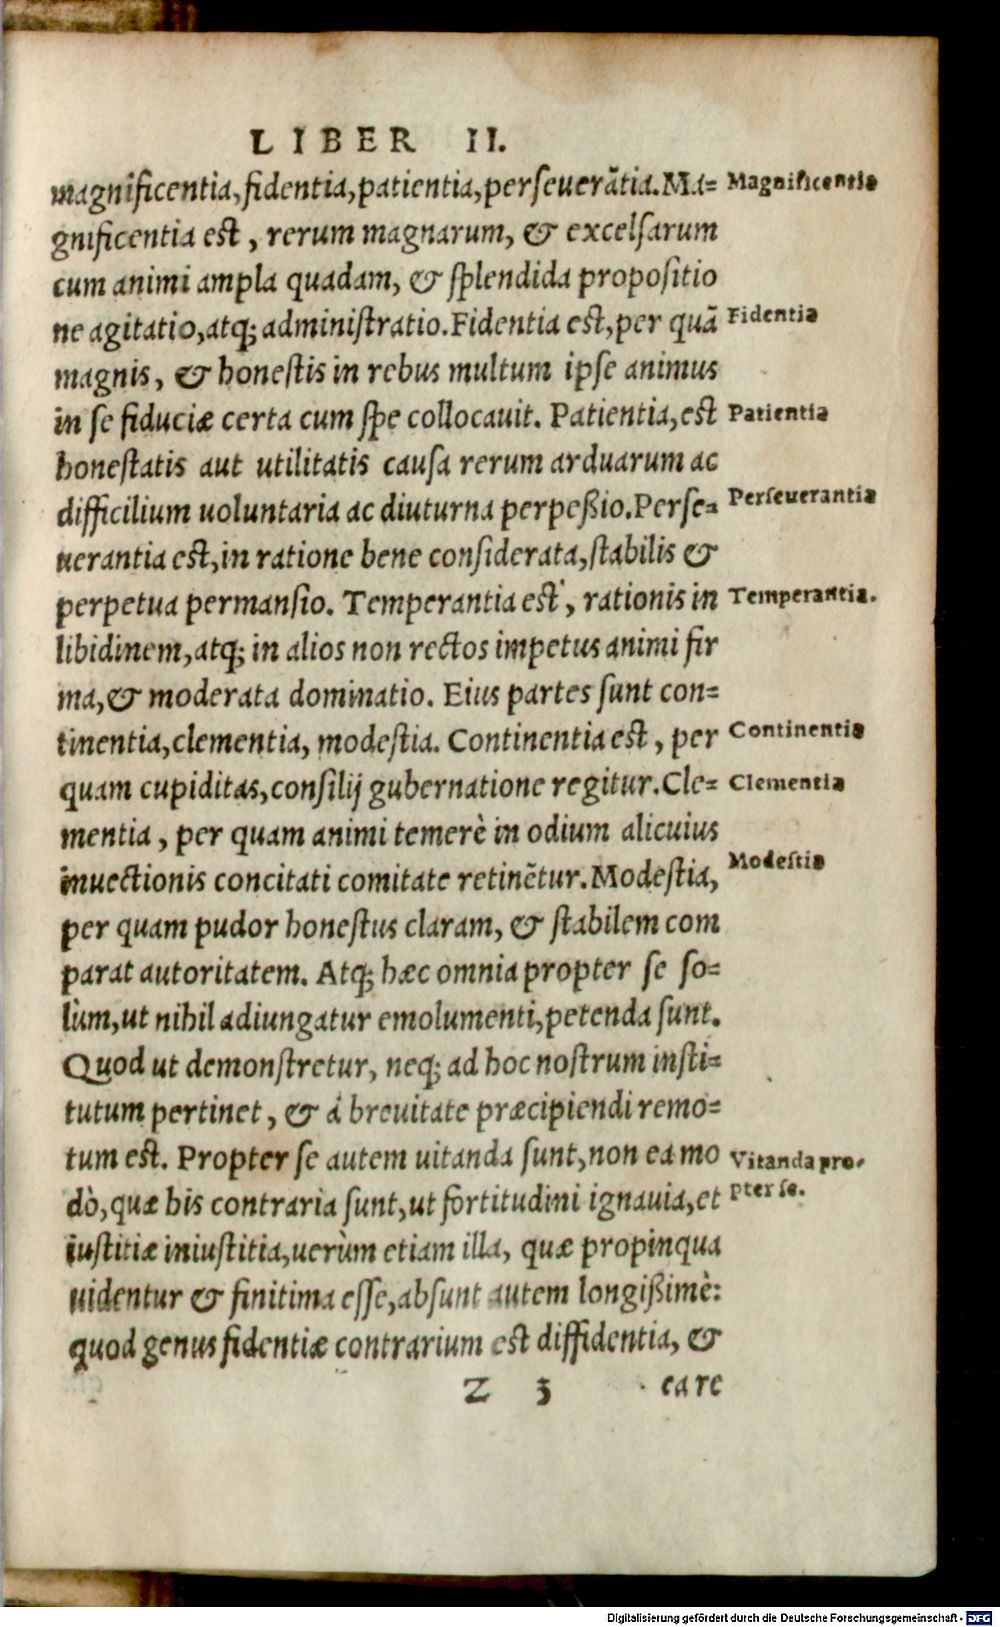 LIBER II.
magnificentia, fidentia, patientia, perseuerãtia. Ma= Magnificentia
gnificentia est, rerum magnarum, & excelsarum
cum animi ampla quadam, & splendida propositio
ne agitatio, atq; administratio. Fidentia est, per quã Fidentia
magnis, & honestis in rebus multum ipse animus
in se fiduciæ certa cum spe collocauit. Patientia, est Patientia
honestatis aut utilitatis causa rerum arduarum ac
difficilium uoluntaria ac diuturna perpeßio. Perse= Perseuerantia
uerantia est, in ratione bene considerata, stabilis &
perpetua permansio. Temperantia est, rationis in Temperantia.
libidinem, atq; in alios non rectos impetus animi fir
ma, & moderata dominatio. Eius partes sunt con=
tinentia, clementia, modestia. Continentia est, per Continentia
quam cupiditas, consilij gubernatione regitur. Cle= Clementia
mentia, per quam animi temerè in odium alicuius
inuectionis concitati comitate retinẽtur. Modestia, Modestia
per quam pudor honestus claram, & stabilem com
parat autoritatem. Atq; hæc omnia propter se so=
lùm, ut nihil adiungatur emolumenti, petenda sunt.
Quod ut demonstretur, neq; ad hoc nostrum insti=
tutum pertinet, & à breuitate præcipiendi remo=
tum est. Propter se autem uitanda sunt, non ea mo Vitanda pro-
dò, quæ his contraria sunt, ut fortitudini ignauia, et pter se.
iustitiæ iniustitia, uerùm etiam illa, quæ propinqua
uidentur & finitima esse, absunt autem longißimè:
quod genus fidentiæ contrarium est diffidentia, &
Z 3 ea re
Digitalisierung gefördert durch die Deutsche Forschungsgemeinschaft - DFG